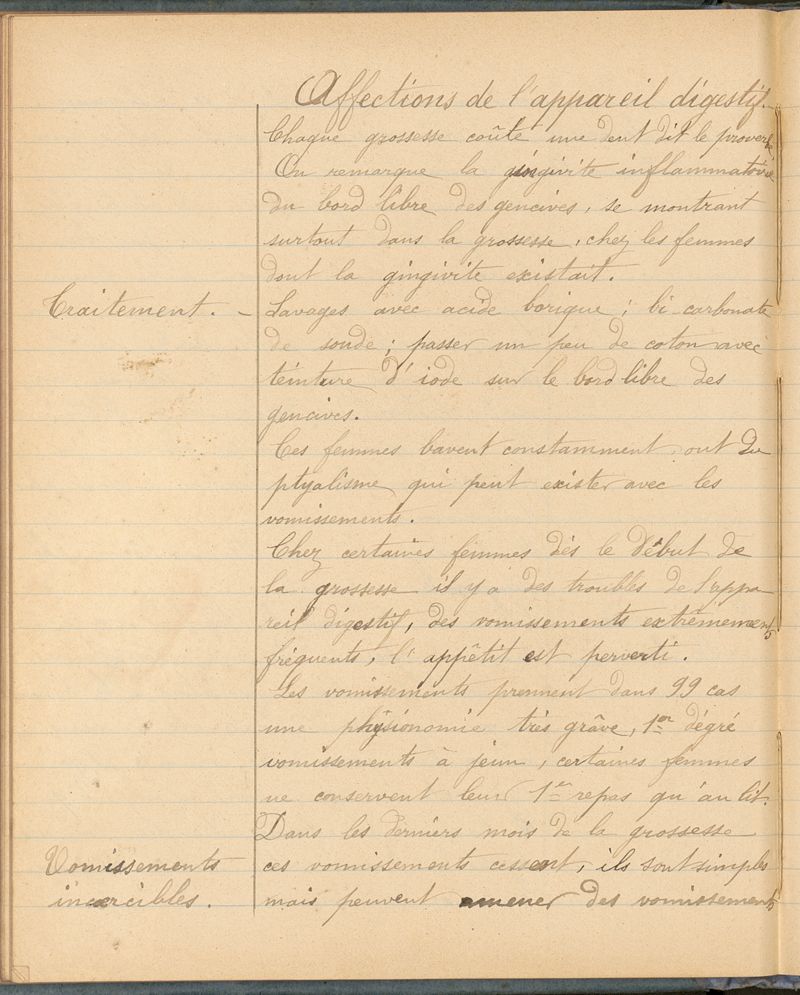 Affections de l'appareil digestif.
Chaque grossesse coûte une dent dit le proverbe
On remarque la gingivite inflammatoire
du bord libre des gencives, se montrant
surtout dans la grossesse, chez les femmes
dont la gingivite existait.
Traitement. - Lavages avec acide borique ; bi carbonate
de soude ; passer un peu de coton avec
teinture d'iode sur le bord libre des
gencives.
Ces femmes bavent constamment, ont du
ptyalisme qui peut exister avec les
vomissements.
Chez certaines femmes dès le début de
la grossesse il y a des troubles de l'appa
reil digestif, des vomissements extrêmement
fréquents, l'appêtit est perverti.
Les vomissements prennent dans 99 cas
une physionomie très grâve, 1er dégré
vomissements à jeun, certaines femmes
ne conservent leur 1er repas qu'au lit.
Dans les derniers mois de la grossesse
Vomissements ces vomissements cessent, ils sont simples
incoercibles. mais peuvent amener des vomissements